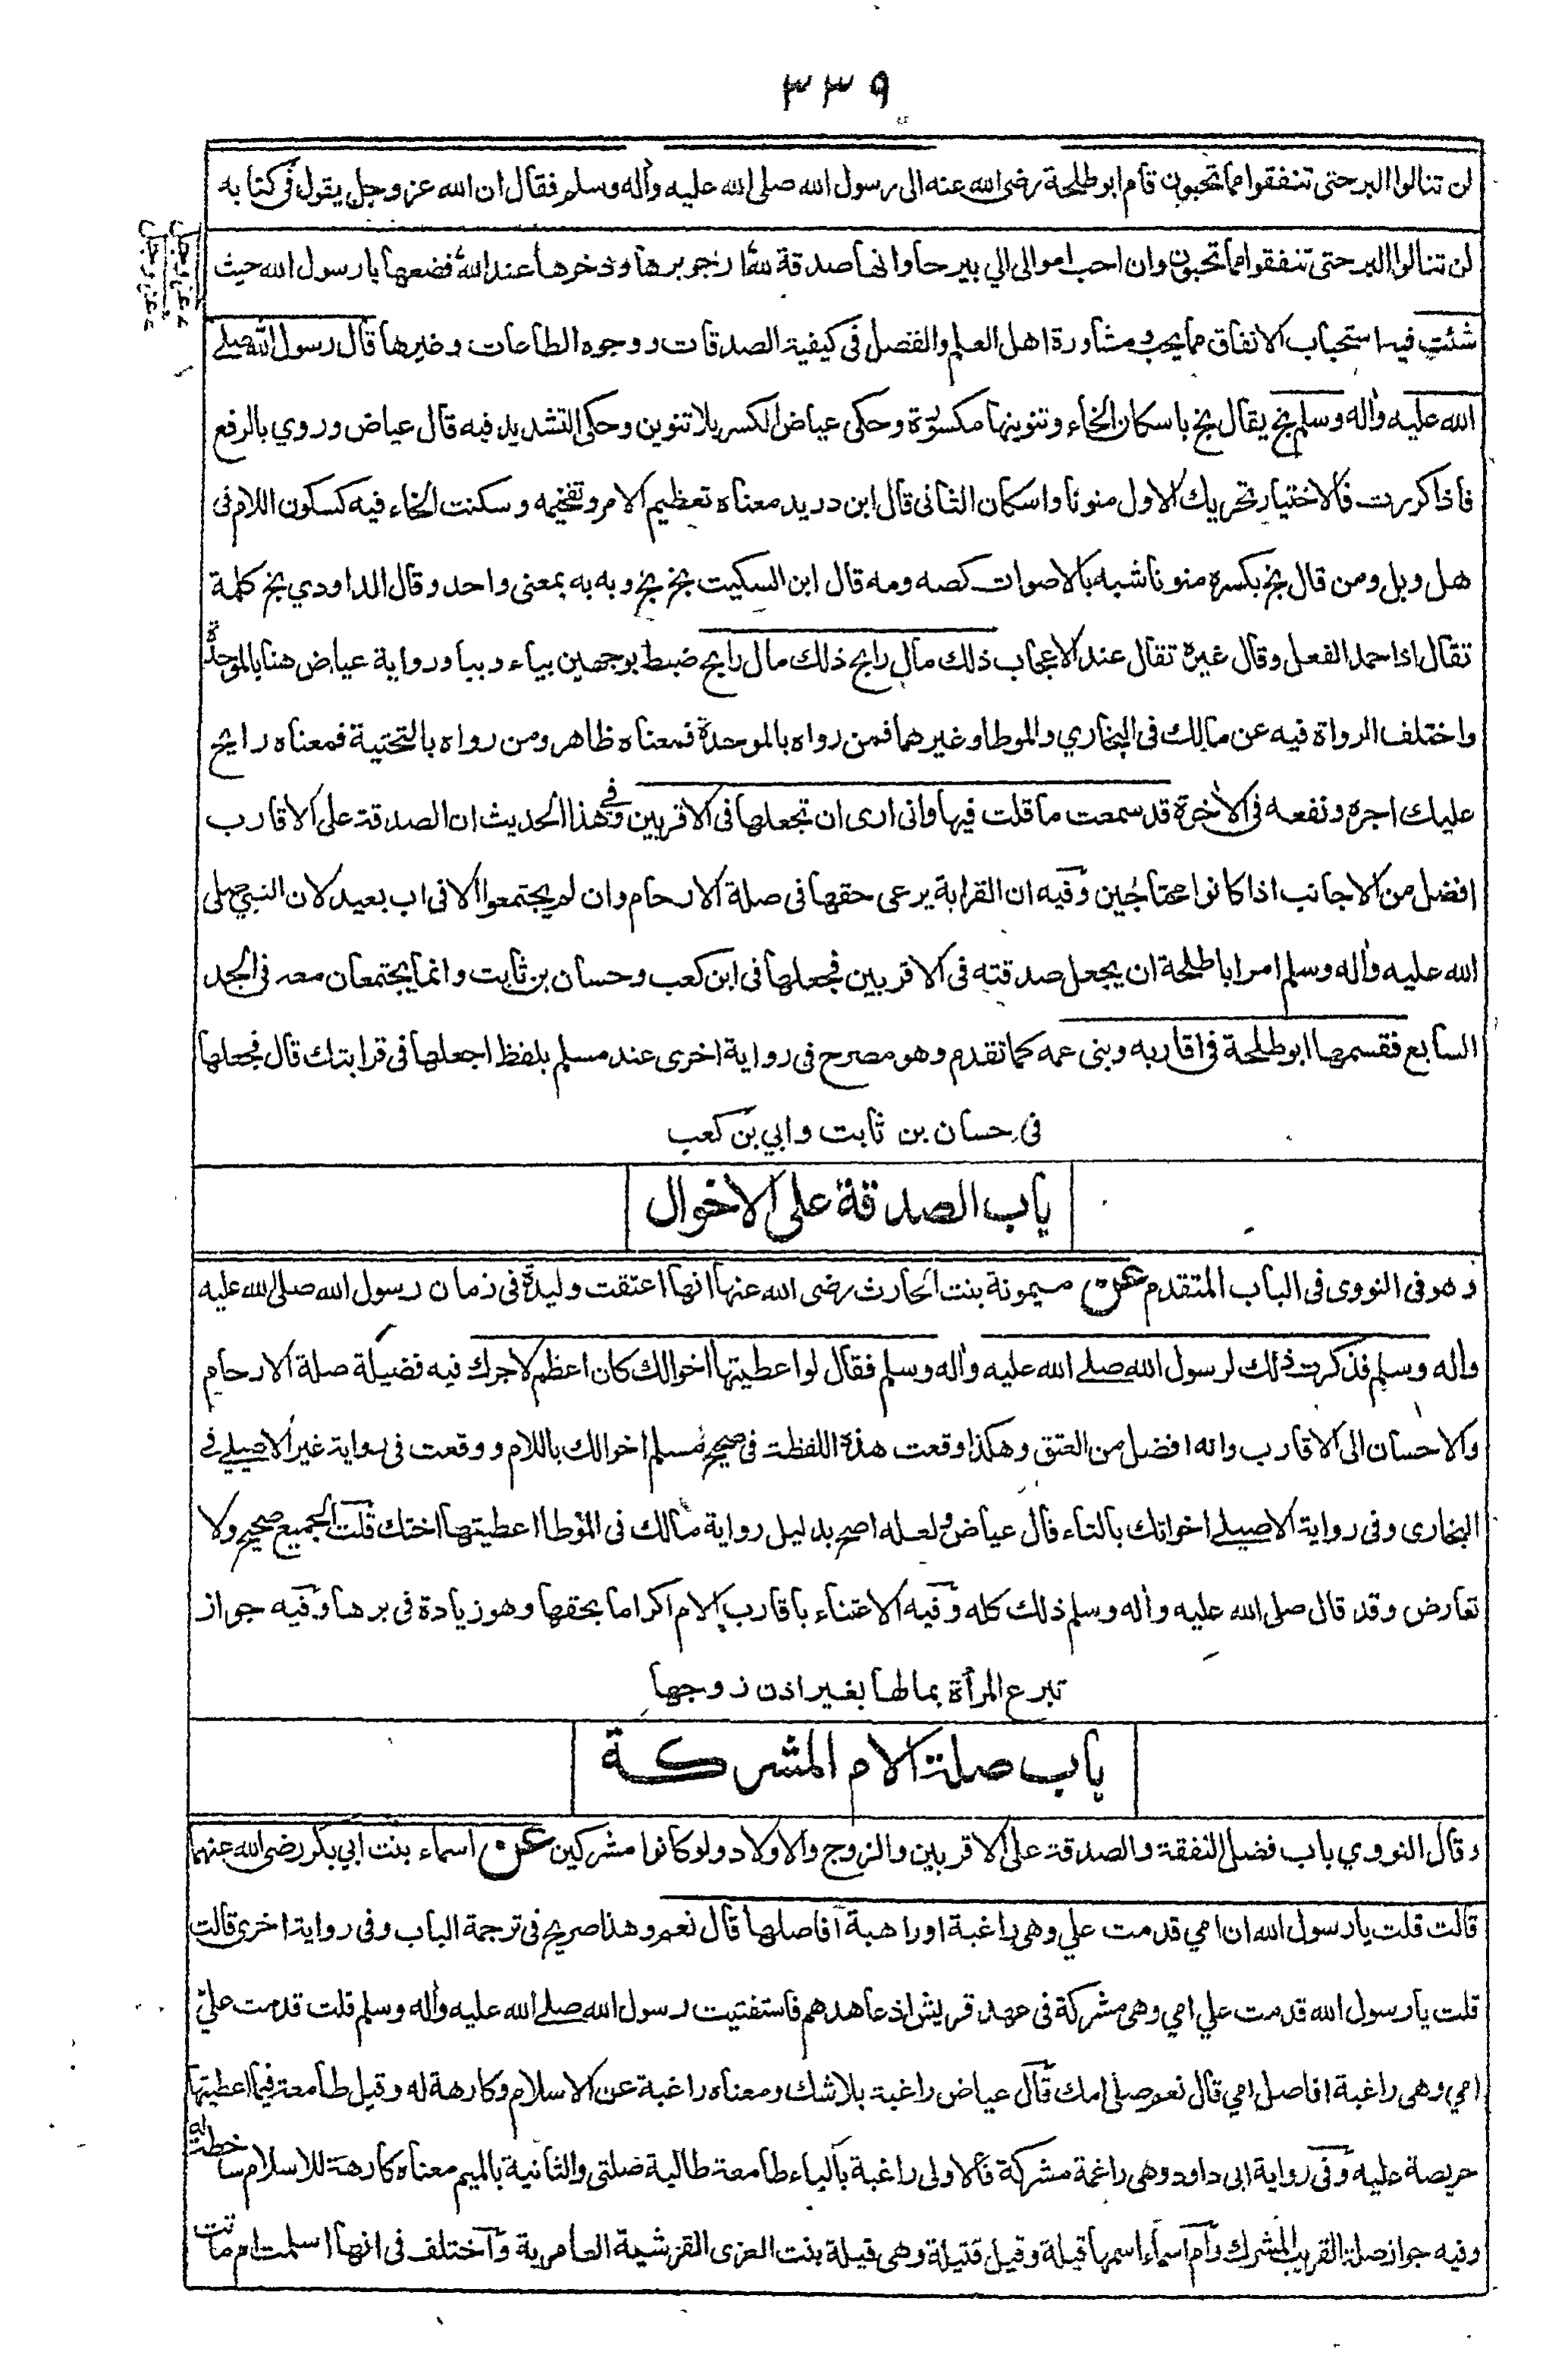 ٣٣٩
لن تنالوا البر حتى تنفقوا مما تحبون قام ابو طلحة رضى الله عنه الى رسول الله صلى الله عليه واٰله وسلم فقال ان الله عز وجل يقول فى كتابه
لن تنالوا البر حتى تنفقوا مما تحبون وان احب اموالى الي بيرحا وانها صدقة لله ارجو برها وذخرها عند الله فضعها يا رسول الله حيث
شئت فيه استحباب الانفاق مما يحب ومشاورة اهل العلم والفضل فى كيفية الصدقات ووجوه الطاعات وغيرها قال رسول الله صلى
الله عليه واٰله وسلم بخ يقال بخ باسكان الخاء وتنوينها مكسورة وحكى عياض الكسر بلا تنوين وحكى التشديد فيه قال عياض وروي بالرفع
فاذا كررت فالاختيار تحريك الاول منونا واسكان الثانى قال ابن دريد معناه تعظيم الامر وتفخيمه وسكنت الخاء فيه كسكون اللام فى
هل وبل ومن قال بخ بكسره منونا شبه بالاصوات كصه ومه قال ابن السكيت بخ بخ وبه به بمعنى واحد وقال الداودي بخ كلمة
تقال اذا حمد الفعل وقال غيره تقال عند الاعجاب ذلك مال رابح ذلك مال رابح ضبط بوجهين بياء وببا ورواية عياض هنا بالموحدة
واختلف الرواة فيه عن مالك فى البخاري والموطا وغيرهما فمن رواه بالموحدة فمعناه ظاهر ومن رواه بالتحتية فمعناه رايح
عليك اجره ونفعه فى الاٰخرة قد سمعت ما قلت فيها وانى ارى ان تجعلها فى الاقربين وفى هذا الحديث ان الصدقة على الاقارب
افضل من الاجانب اذا كانوا محتاجين وفيه ان القرابة يرعى حقها فى صلة الارحام وان لم يجتمعوا الا فى اب بعيد لان النبي صلى
الله عليه واٰله وسلم امر ابا طلحة ان يجعل صدقته فى الاقربين فجعلها فى ابن كعب وحسان بن ثابت وانما يجتمعان معه فى الجد
السابع فقسمها ابو طلحة فى اقاربه وبنى عمه كما تقدم وهو مصرح فى رواية اخرى عند مسلم بلفظ اجعلها فى قرابتك قال فجعلها
فى حسان بن ثابت وابي بن كعب
باب الصدقة على الاخوال
وهو فى النووى فى الباب المتقدم عن ميمونة بنت الحارث رضى الله عنها انها اعتقت وليدة فى زمان رسول الله صلى الله عليه
واٰله وسلم فذكرت ذلك لرسول الله صلى الله عليه واٰله وسلم فقال لو اعطيتها اخوالك كان اعظم لاجرك فيه فضيلة صلة الارحام
والاحسان الى الاقارب وانه افضل من العتق وهكذا وقعت هذه اللفظة فى صحيح مسلم اخوالك باللام ووقعت فى رواية غير الاصيلى فى
البخارى وفى رواية الاصيلى اخواتك بالتاء قال عياض ولعله اصح بدليل رواية مالك فى الموطا اعطيتها اختك قلت الجميع صحيح ولا
تعارض وقد قال صلى الله عليه واٰله وسلم ذلك كله وفيه الاعتناء باقارب الام اكراما بحقها وهو زيادة فى برها وفيه جواز
تبرع المرأة بمالها بغير اذن زوجها
باب صلة الام المشركة
وقال النووي باب فضل النفقة والصدقة على الاقربين والزوج والاولاد ولو كانوا مشركين عن اسماء بنت ابي بكر رضى الله عنهما
قالت قلت يا رسول الله ان امي قدمت علي وهى راغبة او راهبة أفاصلها قال نعم وهذا صريح فى ترجمة الباب وفى رواية اخرى قالت
قلت يا رسول الله قدمت علي امي وهى مشركة فى عهد قريش اذ عاهدهم فاستفتيت رسول الله صلى الله عليه واٰله وسلم قلت قدمت علي
امي وهى راغبة افاصل امي قال نعم صلى امك قال عياض راغبة بلا شك ومعناه راغبة عن الاسلام وكارهة له وقيل طامعة فيما اعطيتها
حريصة عليه وفى رواية ابى داود وهى راغمة مشركة فالاولى راغبة بالباء طامعة طالبة صلتى والثانية بالميم معناه كارهة للاسلام ساخطته
وفيه جواز صلة القريب المشرك وام اسماء اسمها قيلة وقيل قتيلة وهى قيلة بنت العزى القرشية العامرية واختلف فى انها اسلمت ام ماتت